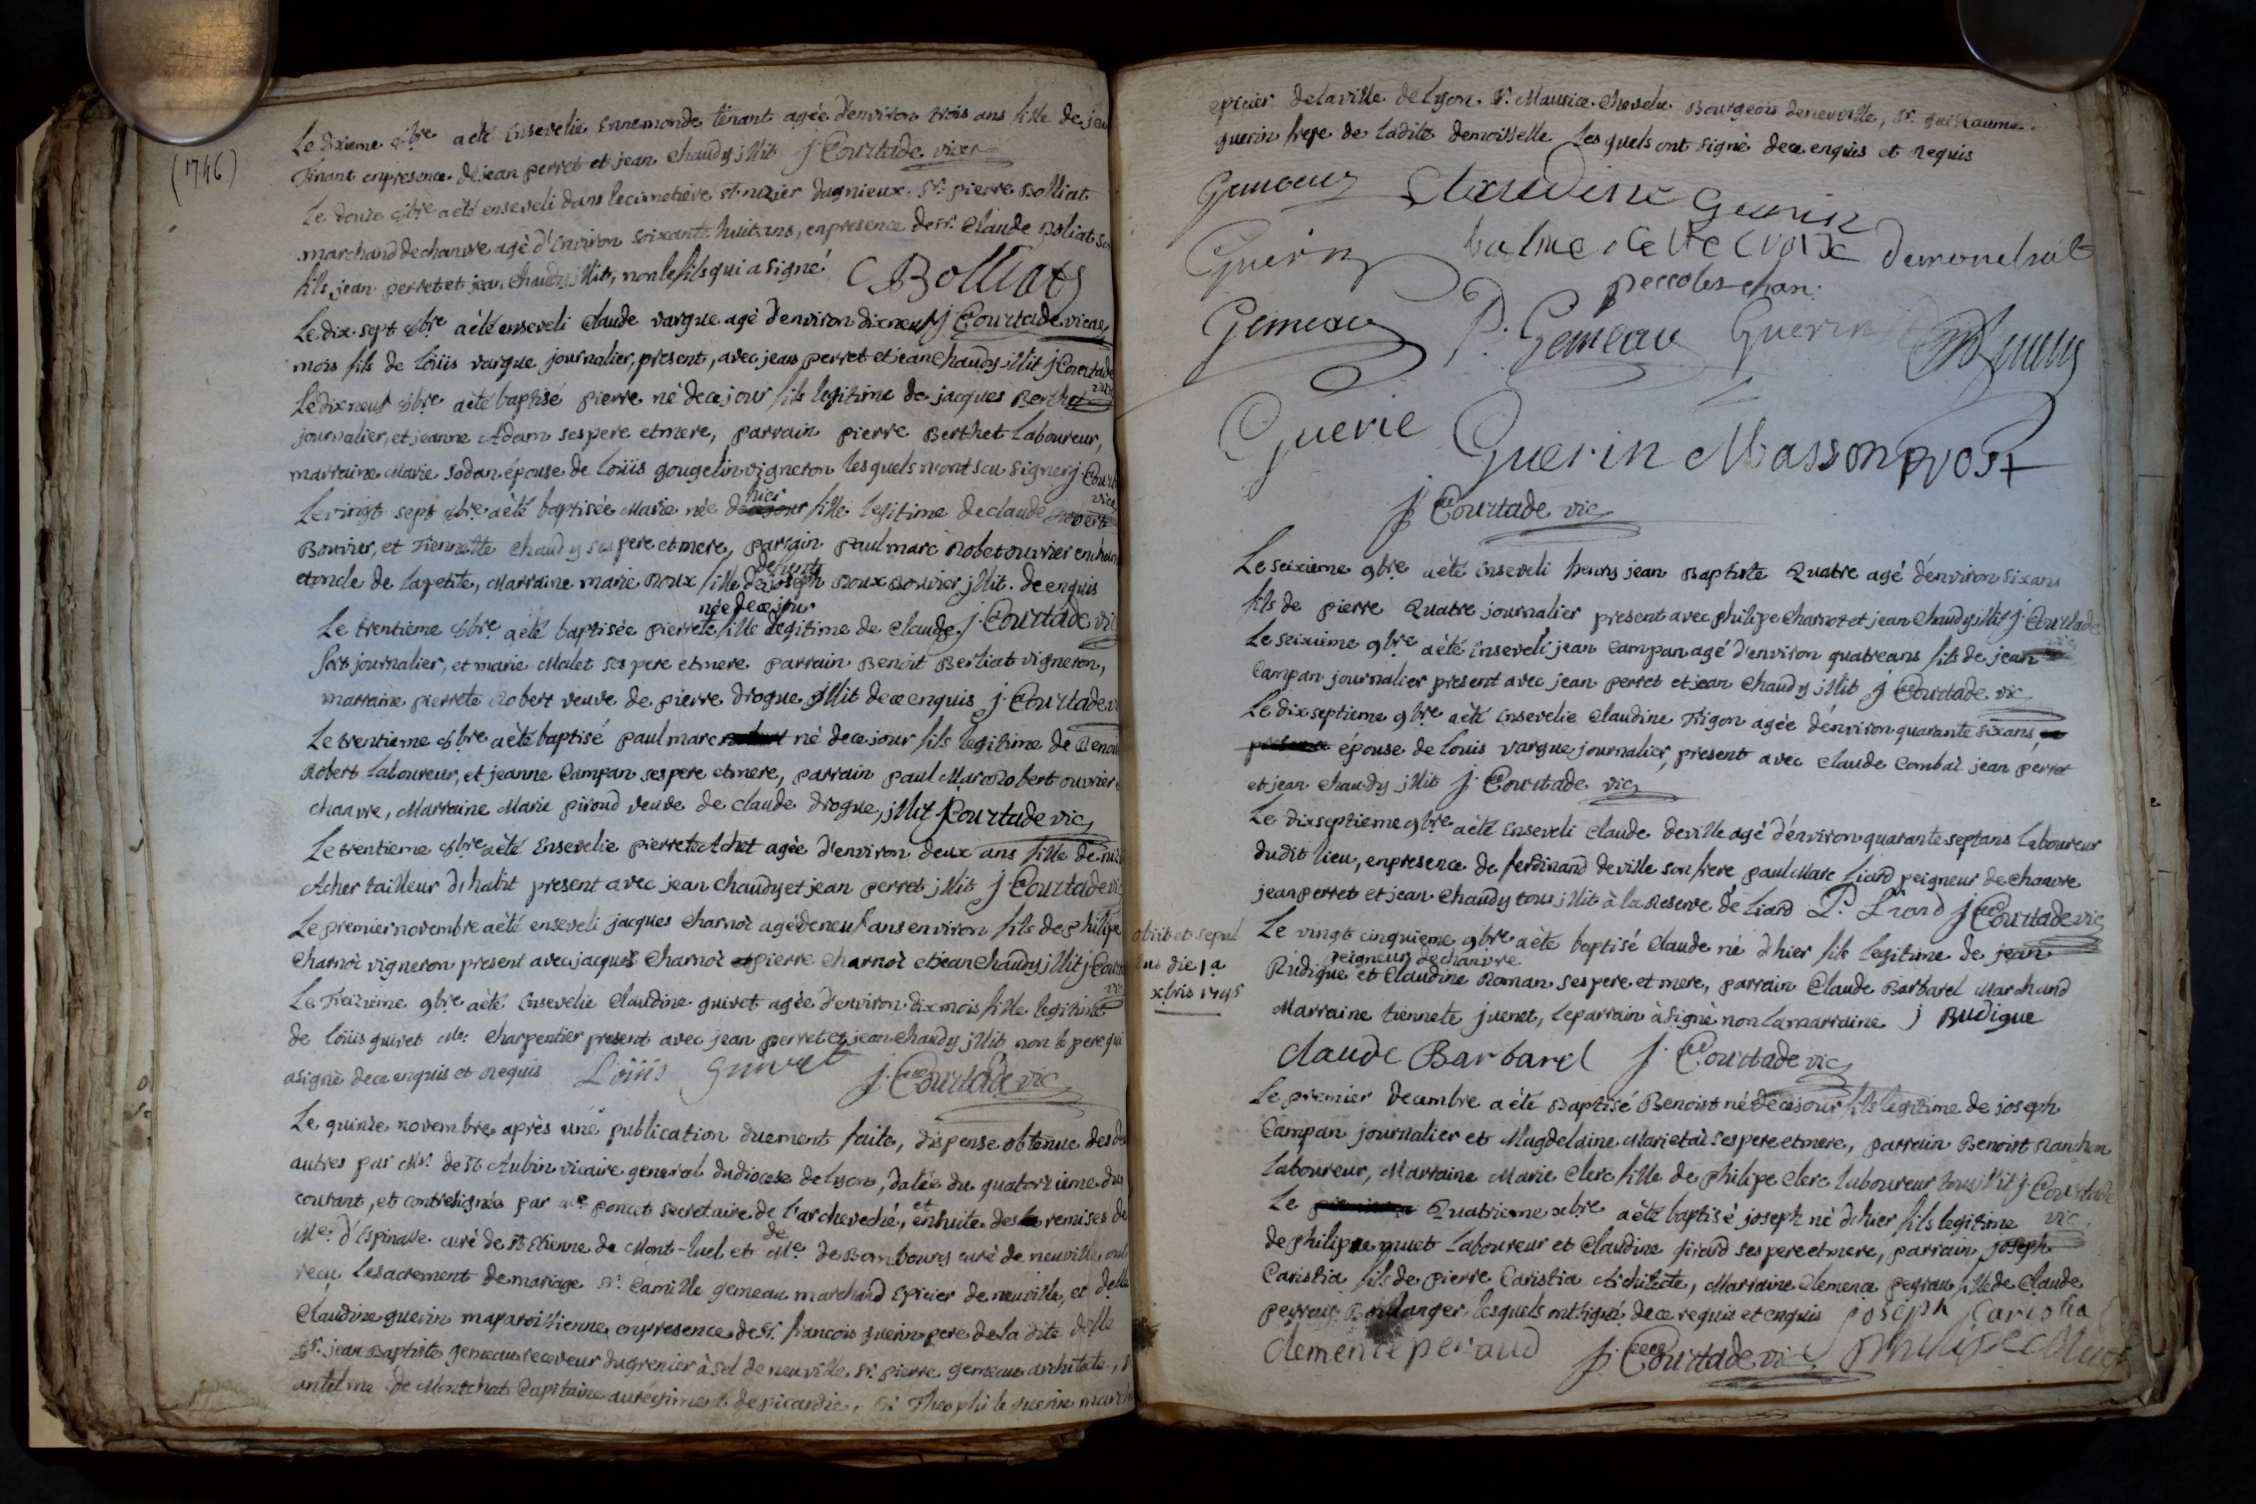 (1746)
Le dixieme 8bre a eté Ensevelie Ennemonde tinant agée d'environ trois ans fille de jean
Tinant en presence de jean perret et jean chaudy illit j Courtade vicr
Le douze 8bre a eté enseveli dans le cimetiere st nizier dagnieux Sr. pierre Bolliat
marchand de chanvre agé d'Environ soixante huit ans, en presence de sr. Claude Boliat son
fils, jean perret et jean chaudy illit, non le fils qui a signé C Bolliat
Le dix sept 8bre a eté enseveli Claude vargue agé d'environ dix neuf j Courtade vicaire
mois fils de Loüis vargue journalier, present, avec jean perret et jean chaudy illit j Courtade
vic
Le dix neuf 8bre a eté baptisé pierre né de ce jour fils legitime de jacques Berthet
journalier, et jeanne Adam ses pere et mere, parrain pierre Berthet Laboureur,
marraine Marie sodan épouse de Loüis gougelin vigneron lesquels n'ont scu signer j Court
vic
Le vingt sept 8bre a eté baptisée Marie née d'hier fille legitime de claude
Bouvier, et Tiennette chaudy ses pere et mere, parrain paul marc Robet ouvrier en chanvre
et oncle de la petite, Marraine marie Roux fille de defunt joseph Roux Bouvier illit. de enquis
Le trentieme 8bre a eté baptisée pierrete née de ce jour fille legitime de claude j. Courtade vic
fort journalier, et marie Malet ses pere et mere parrain Benoit Berliat vigneron,
marraine pierrete Robert veuve de pierre drogue illit de ce enquis j. Courtade vi
Le trentieme 8bre a eté baptisé paul marc né de ce jour fils legitime de Benoit
Robert Laboureur, et jeanne Campan ses pere et mere, parrain paul Marc Robert ouvrier
chanvre, Marraine Marie piroud veuve de claude drogue, illit j Courtade vic
Le trentieme 8bre a eté Ensevelie pierrete Achet agée d'environ deux ans fille de
Acher tailleur d'habit present avec jean chaudy et jean perret illit j Courtade vic
Le premier novembre a eté enseveli jacques Charnoi agé de neuf ans environ fils de philipe
Charnoi vigneron present avec jacques Charnoi pierre Charnoi et jean chaudy illit j Court
vi
Le Treizieme 9bre a eté Ensevelie Claudine guivet agée d'environ dix mois fille legitime
de Loüis guivet Me. charpentier present avec jean perret et jean chaudy illit non le pere qui
a signé de ce enquis et Requis Loüis Guivet j. Courtade vic
Le quinze novembre après une publication duement faite, dispense obtenue des deux
autres par Mr. de St Aubin vicaire general du diocese de Lyon, datée du quatorzieme du
courant, et contresignée par Me poncet secretaire de l'archeveché, et ensuite des remises de
Me. d'Espinasse curé de St Etienne de Mont-luel et de Me. de Bombourg curé de neuville ont
reçu le sacrement de mariage Sr. Camille gemeau marchand Epicier de neuville, et delle
Claudine guerin ma paroissienne en presence de Sr. francois guerin pere de la dite delle
Sr. jean Baptiste gemeau receveur du grenier à sel de neuville, Sr. pierre gemeau architecte,
antelme de Montchat Capitaine au régiment de picardie, Sr. Theophile guerin march
epicier de la ville de Lyon. Sr. Maurice chevelu Bourgeois de neuville, Sr. guillaume
guerin frere de ladite demoiselle Lesquels ont signé de ce enquis et Requis
Gemeau Claudine Guerin
Guerin balme de Ste Croix demonchat
perroles chan.
Gemeau P. Gemeau Guerin
Guerie Guerin Masson prost
j Courtade vic
Le seizieme 9bre a eté Enseveli henry jean Baptiste Quatre agé d'environ six ans
fils de pierre Quatre journalier present avec philipe charnot et jean chaudy illit j Courtade
vic
Le seizieme 9bre a eté Enseveli jean Campan agé d'environ quatre ans fils de jean
Campan journalier present avec jean perret et jean chaudy illit j Courtade vic
Le dix septieme 9bre a eté Ensevelie claudine Trigon agée d'environ quarante six ans
épouse de Louis vargue journalier, present avec claude Combai jean perret
et jean chaudy illit j. Courtade vic
Le dix septieme 9bre a eté Enseveli Claude deville agé d'environ quarante sept ans Laboureur
dudit lieu, en presence de ferdinand deville son frere paul Marc Liard peigneur de chanvre
jean perret et jean chaudy tous illit à la Reserve de Liard P. Liard j Courtade vic
obiit et sepul
die 1a
xbris 1745
Le vingt cinquieme 9bre a eté baptisé Claude né d'hier fils legitime de jean
Rudigue peigneur de chanvre et Claudine Roman ses pere et mere, parrain Claude Barbarel Marchand
Marraine tiennete juenet, le parrain à signé non la marraine j Rudigue
claude Barbarel j. Courtade vic
Le premier decembre a eté Baptisé Benoist né de ce jour fils legitime de joseph
Campan journalier et Magdelaine Marietai ses pere et mere, parrain Benoist Ranchon
Laboureur, Marraine Marie Clerc fille de philipe Clerc Laboureur tous illit j. Courtade
vic
Le Quatrieme xbre a eté baptisé joseph né d'hier fils legitime
de philippe muet Laboureur et Claudine girard ses pere et mere, parrain joseph
Caristia fils de pierre Caristia Architecte, Marraine Clemence peyraud fille de Claude
peyraud Boulanger, lesquels ont signé de ce requis et enquis joseph Caristia
clemence peiraud j. Courtade vic philipe Muet